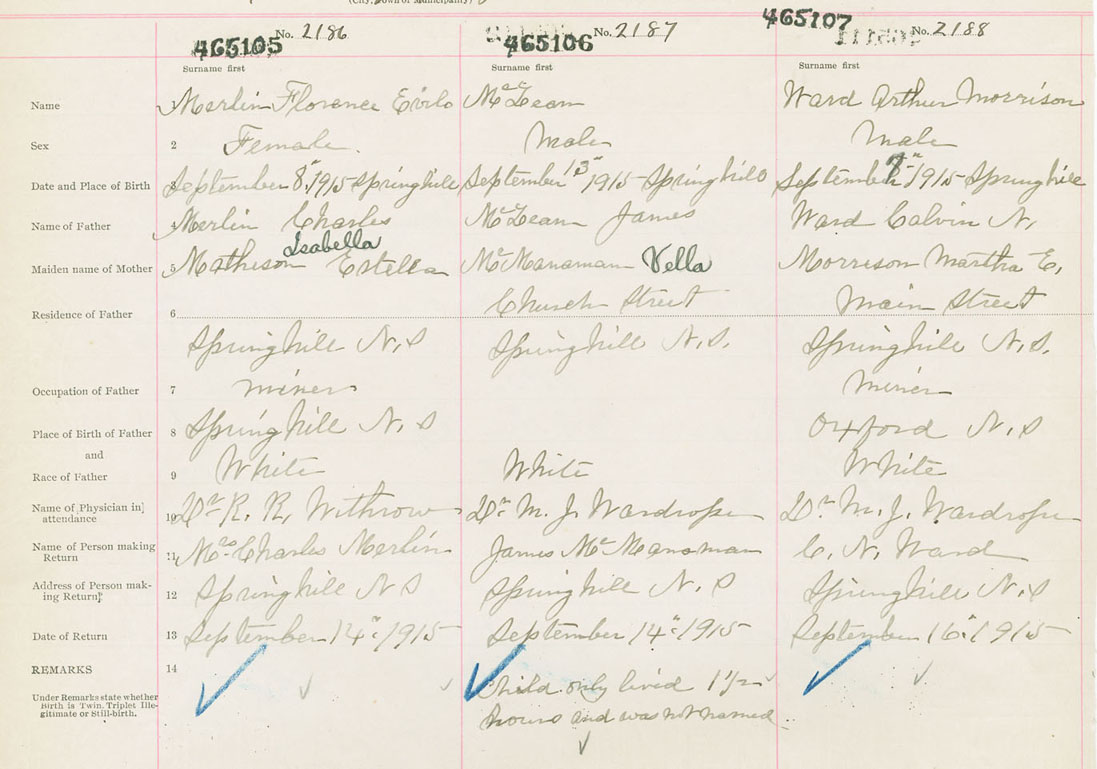 (City, Town or Municipality)
465105 No. 2186
465106 No. 2187
465107 No. 2188
Surname first Surname first Surname first
Name Merlin Florence McLean Ward Arthur Morrison
Sex 2 Female. Male Male
Date and Place of Birth September 8" 1915 Springhill September 13" 1915 Springhill September 1915 Springhill
Name of Father Merlin Charles McLean James Ward Calvin N.
Isabella
Maiden name of Mother 5 Matheson Estella McManaman Vella Morrison Martha E.
Church Street Main Street
Residence of Father 6
Springhill N.S Springhill N.S. Springhill N.S.
Occupation of Father 7 miner Miner
Place of Birth of Father 8 Springhill N.S Oxford N.S
and
Race of Father 9 White White White
Name of Physician in attendance 10 Dr R. R. Withrow Dr M. J. Wardrope Dr. M. J. Wardrope
Name of Person making Return 11 Mrs Charles Merlin James McManaman C. N. Ward
Address of Person making Return 12 Springhill N S Springhill N.S Springhill N.S
Date of Return 13 September 14" 1915 September 14" 1915 September 16" 1915
REMARKS 14
Under Remarks state whether Birth is Twin, Triplet Illegitimate or Still-birth.
Child only lived 1 1/2
hours and was not named